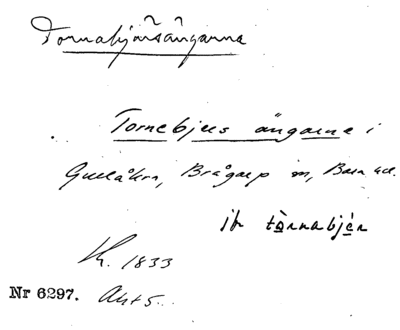 Tornabjärsängarna
Tornebjers ängarne i
Gullåkra, Brågarp m, Bara hd.
jfr tòrnabjér
Kr. 1833
Nr 6297. Akt 5.